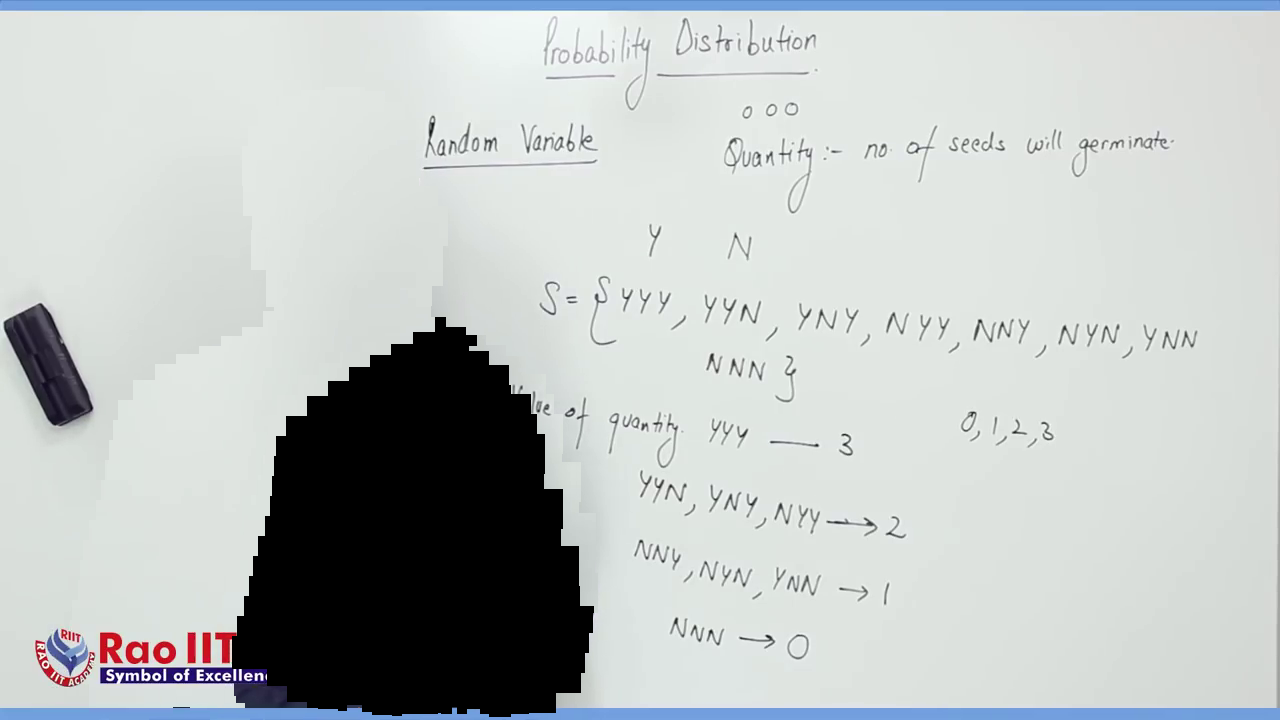 Probability Distribution
Random Variable
o o o
Quantity :- no. of seeds will germinate.
Y N
S = { YYY, YYN, YNY, NYY, NNY, NYN, YNN
NNN }
of quantity. YYY — 3
0, 1, 2, 3
YYN, YNY, NYY → 2
NNY, NYN, YNN → 1
NNN → 0
RIIT
RAO IIT ACADEMY
Rao IIT
Symbol of